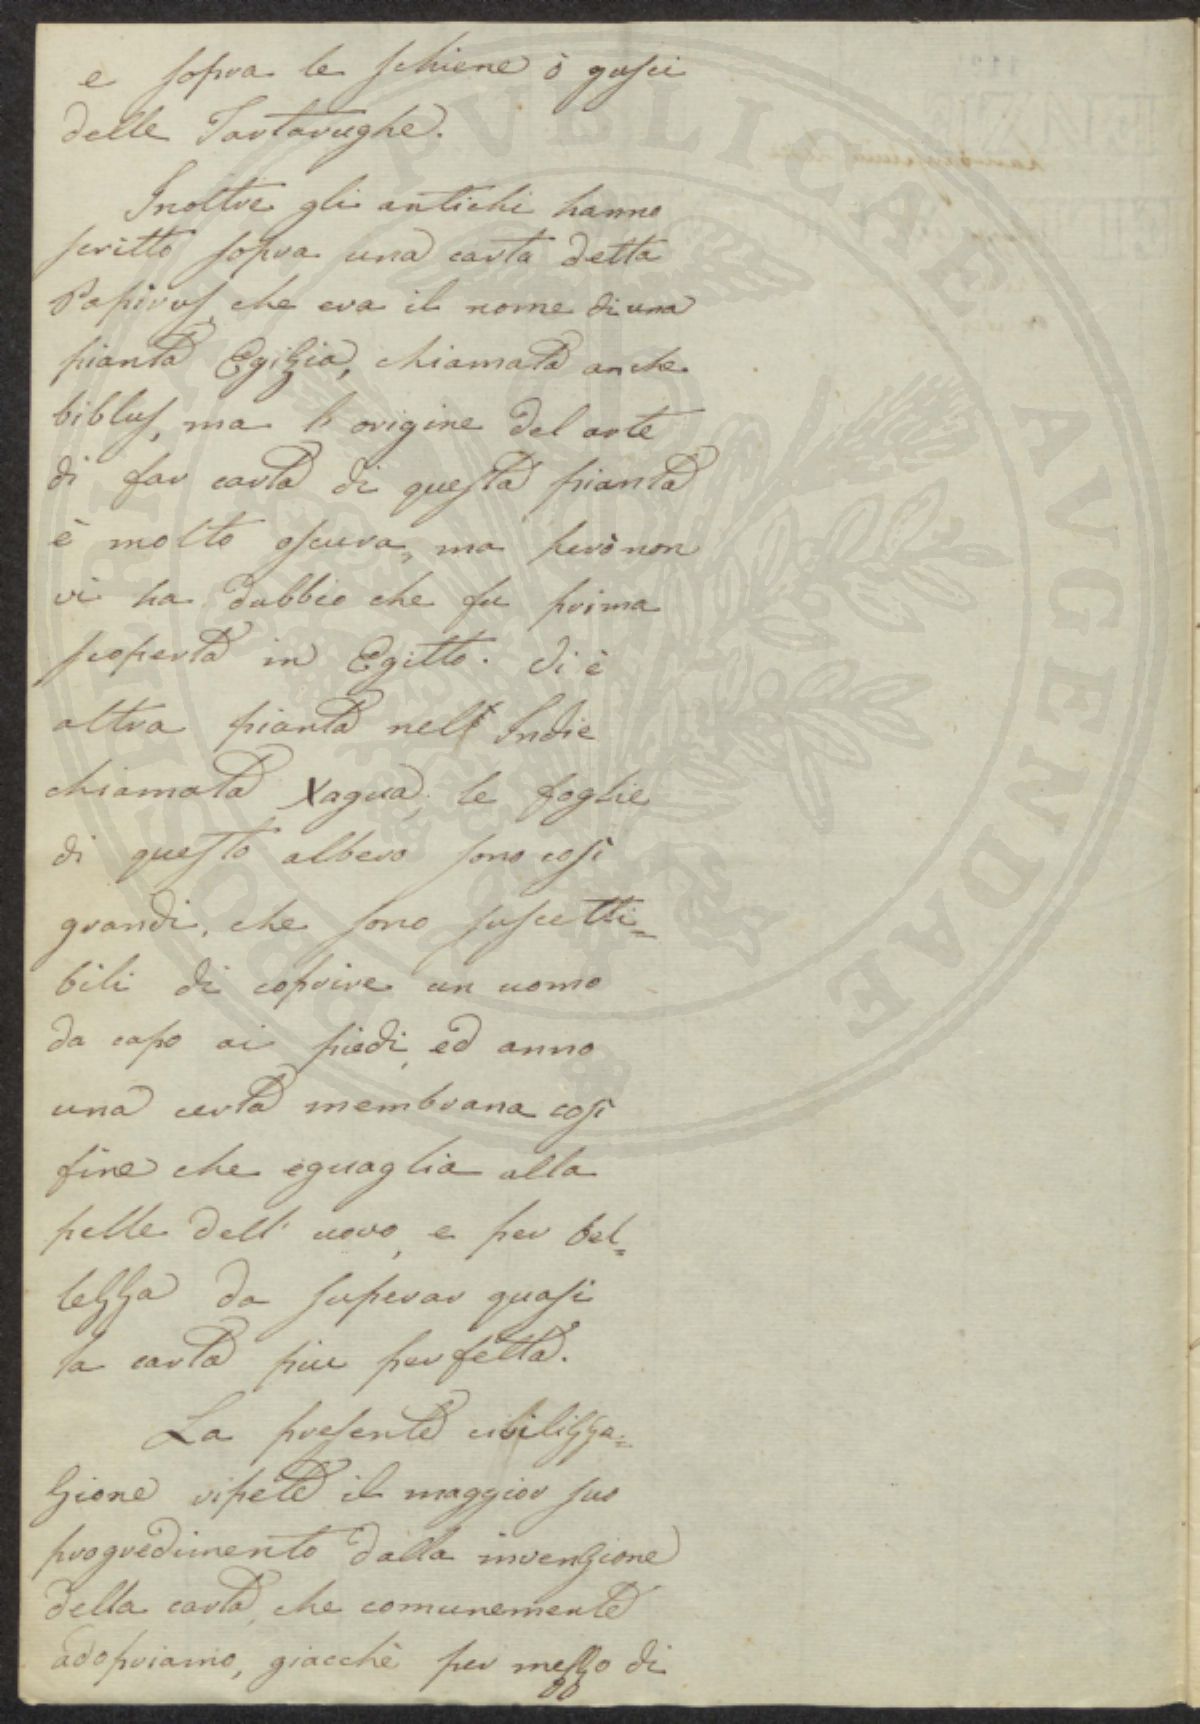 e sopra le schiene ò gusci
delle Tartarughe.
Inoltre gli antichi hanno
scritto sopra una carta detta
Papirus, che era il nome di una
pianta Egizia, chiamata anche
biblus, ma l'origine del arte
di far carta di questa pianta
è molto oscura, ma però non
vi ha dubbio che fu prima
scoperta in Egitto. Vi è
altra pianta nell' Indie
chiamata Xagua, le foglie
di questo albero sono così
grandi, che sono suscetti=
bili di coprire un uomo
da capo ai piedi, ed anno
una certa membrana così
fine che eguaglia alla
pelle dell' uovo, e per bel=
lezza da superar quasi
la carta piu perfetta.
La presente civilizza=
zione ripete il maggior suo
progredimento dalla invenzione
della carta, che comunemente
adopriamo, giacchè per mezzo di
PVBLICAE AVGENDAE